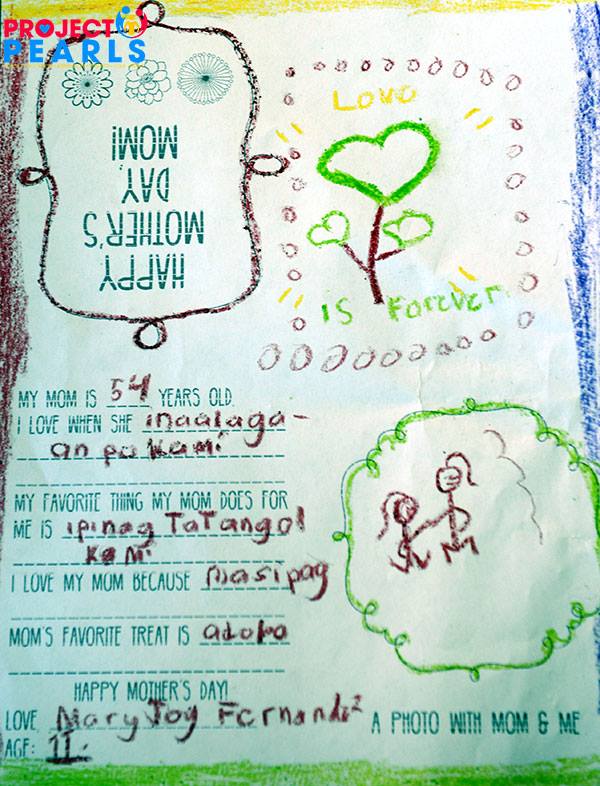 PROJECT
PEARLS
HAPPY
MOTHER'S
DAY,
MOM!
LOVE
IS Forever
MY MOM IS 54 YEARS OLD.
I LOVE WHEN SHE inaalaga-
an po kami
MY FAVORITE THING MY MOM DOES FOR
ME IS ipinag TaTangol
kami
I LOVE MY MOM BECAUSE masipag
MOM'S FAVORITE TREAT IS adobo
HAPPY MOTHER'S DAY!
LOVE, Mary Joy Fernandez
AGE: 11.
A PHOTO WITH MOM & ME